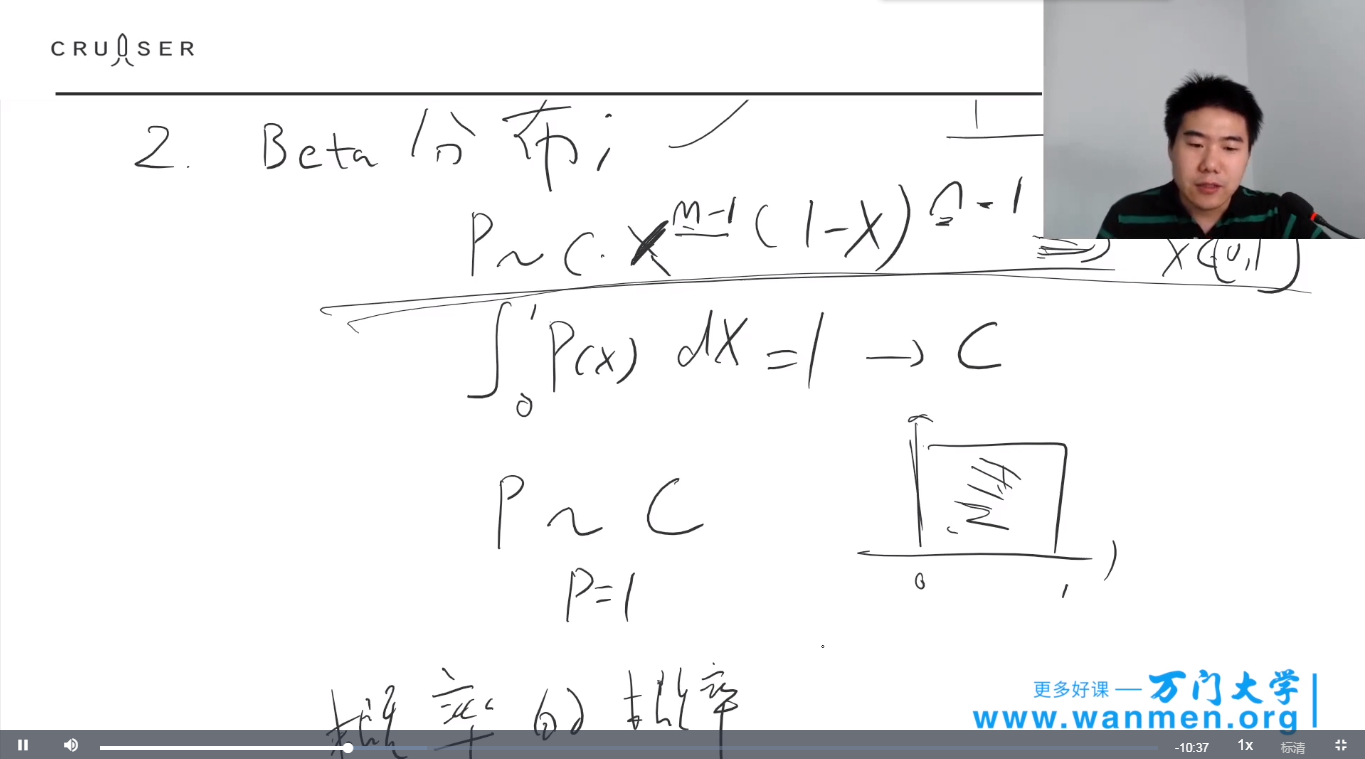 CRUISER
2. Beta 分布;
P ~ C · X^{m-1} (1-X)^{n-1} ⇒ X ∈ (0,1)
∫_0^1 P(x) dX = 1 → C
P ~ C
P = 1
0 1
概率的概率
更多好课 — 万门大学
www.wanmen.org
-10:37 1x 标清